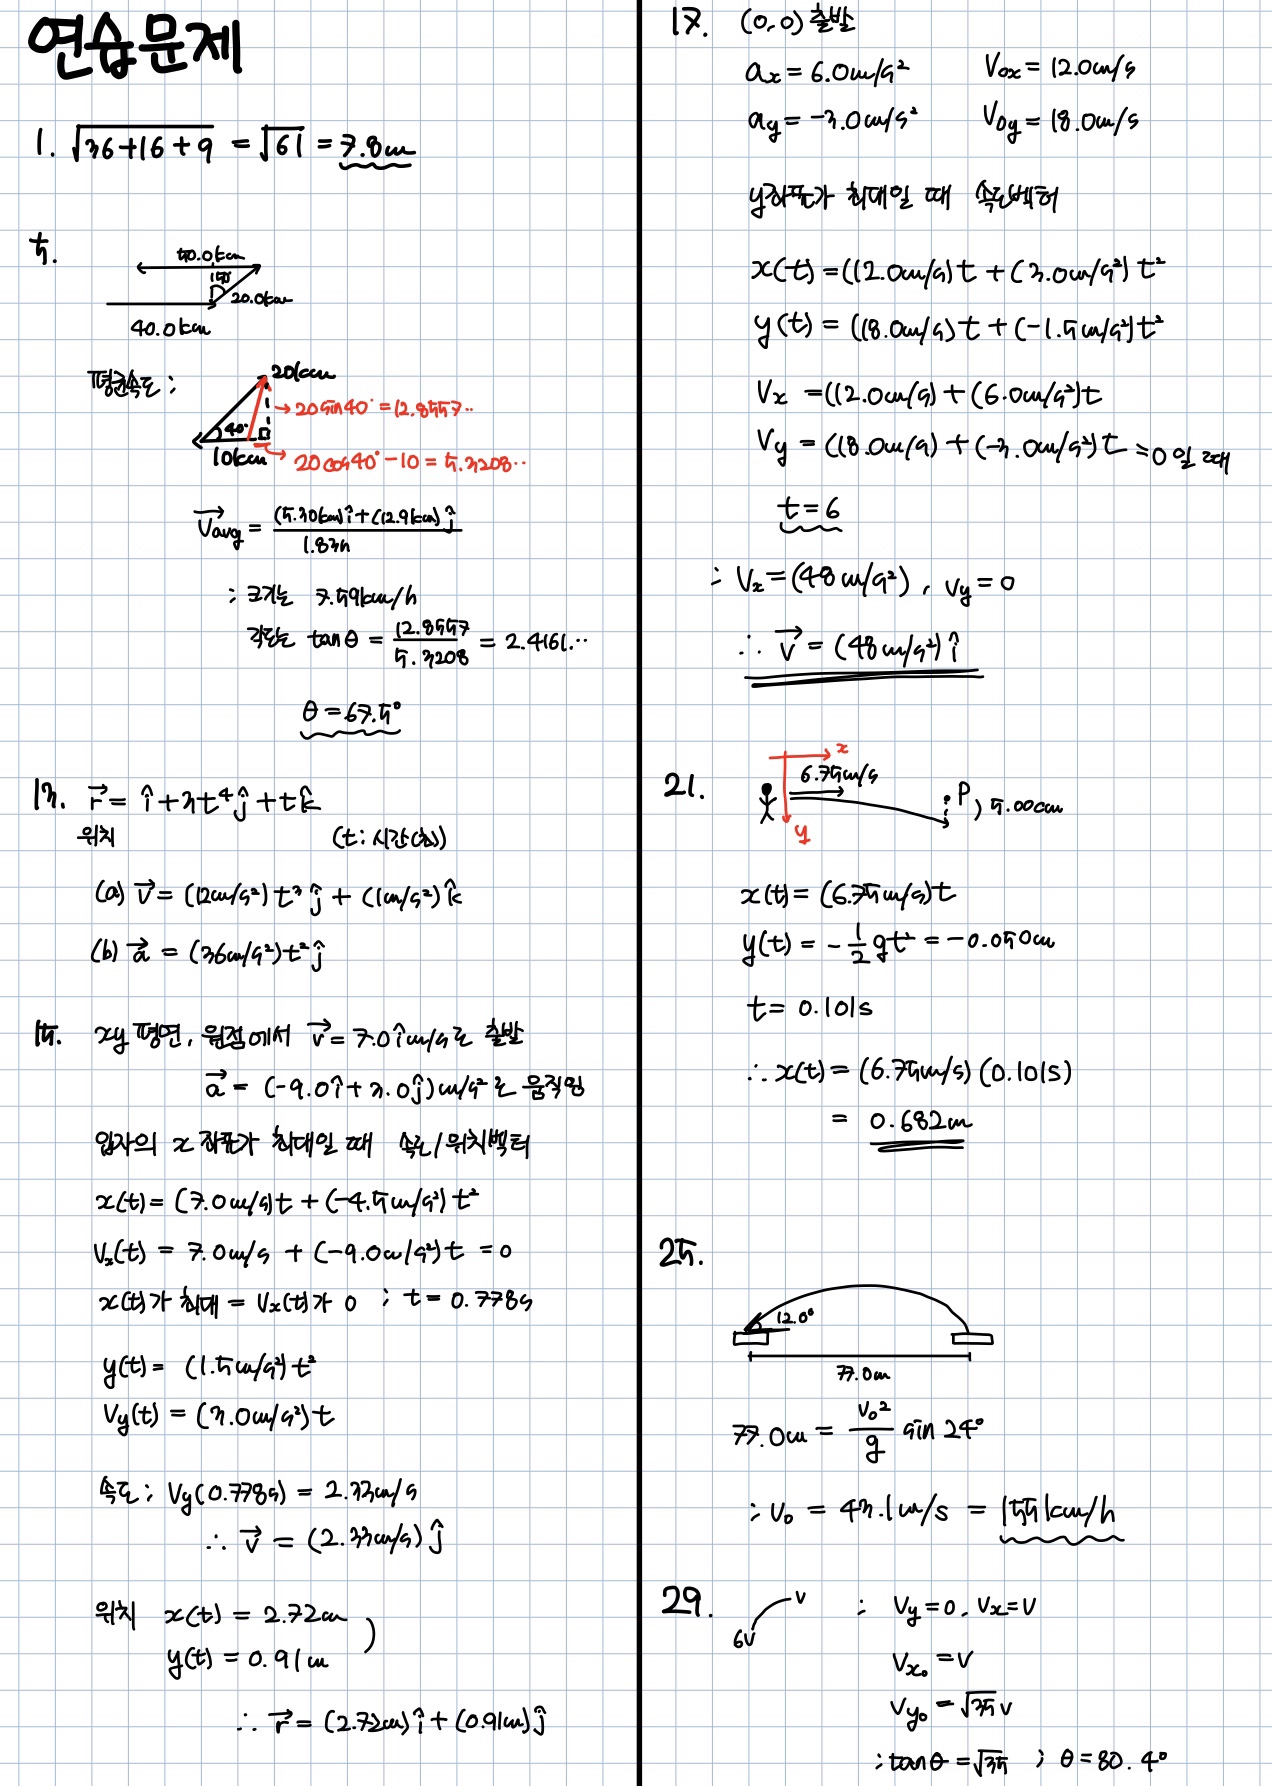 연습문제
1. √36+16+9 = √61 = 7.8m
5.
50.0km
150
20.0km
40.0km
평균속도 :
20km
→ 20 sin40° = 12.8557··
40°
10km
→ 20 cos40° - 10 = 5.3208··
V⃗avg = (5.30km)î + (12.9km)ĵ / 1.83h
: 크기는 7.59km/h
각도는 tanθ = 12.8557 / 5.3208 = 2.4161···
θ = 67.5°
13. r⃗ = î + 3t⁴ĵ + tk̂
위치 (t : 시간(초))
(a) v⃗ = (12m/s²) t³ ĵ + (1m/s²) k̂
(b) a⃗ = (36m/s²)t² ĵ
15. xy 평면, 원점에서 v⃗ = 7.0î m/s로 출발
a⃗ = (-9.0î + 3.0ĵ) m/s²로 움직임
입자의 x 좌표가 최대일 때 속도/위치벡터
x(t) = (7.0m/s)t + (-4.5m/s²) t²
Vx(t) = 7.0m/s + (-9.0m/s²)t = 0
x(t)가 최대 = Vx(t)가 0 ; t = 0.778s
y(t) = (1.5m/s²)t²
Vy(t) = (3.0m/s²)t
속도 ; Vy(0.778s) = 2.33m/s
∴ v⃗ = (2.33m/s) ĵ
위치 x(t) = 2.72m
y(t) = 0.91m )
∴ r⃗ = (2.72m)î + (0.91m)ĵ
17. (0,0) 출발
ax = 6.0m/s² V0x = 12.0m/s
ay = -3.0m/s² V0y = 18.0m/s
y좌표가 최대일 때 속도벡터
x(t) = (12.0m/s)t + (3.0m/s²) t²
y(t) = (18.0m/s)t + (-1.5m/s²)t²
Vx = (12.0m/s) + (6.0m/s²)t
Vy = (18.0m/s) + (-3.0m/s²)t = 0 일 때
t = 6
: Vx = (48m/s²), Vy = 0
∴ v⃗ = (48m/s²) î
21.
x
6.75m/s
P
) 5.00cm
y
x(t) = (6.75m/s)t
y(t) = -1/2 gt² = -0.050m
t = 0.101s
∴ x(t) = (6.75m/s)(0.101s)
= 0.682m
25.
12.0°
77.0m
77.0m = v₀²/g sin 24°
: v₀ = 43.1m/s = 155km/h
29.
v
6v
: Vy = 0, Vx = V
Vx₀ = V
Vy₀ = √35 V
: tanθ = √35 ; θ = 80.4°